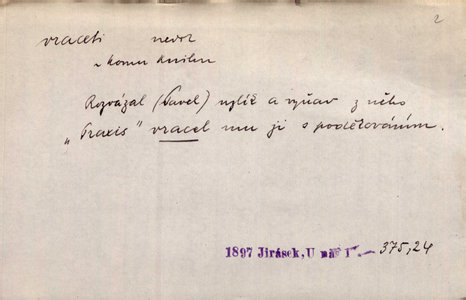 2
vraceti nedok
~ komu knihu
Rozvázal (Pavel) uzlíž a vyňav z něho
„Praxis“ vracel mu ji s poděkováním.
1897 Jirásek, U nás I — 375,24